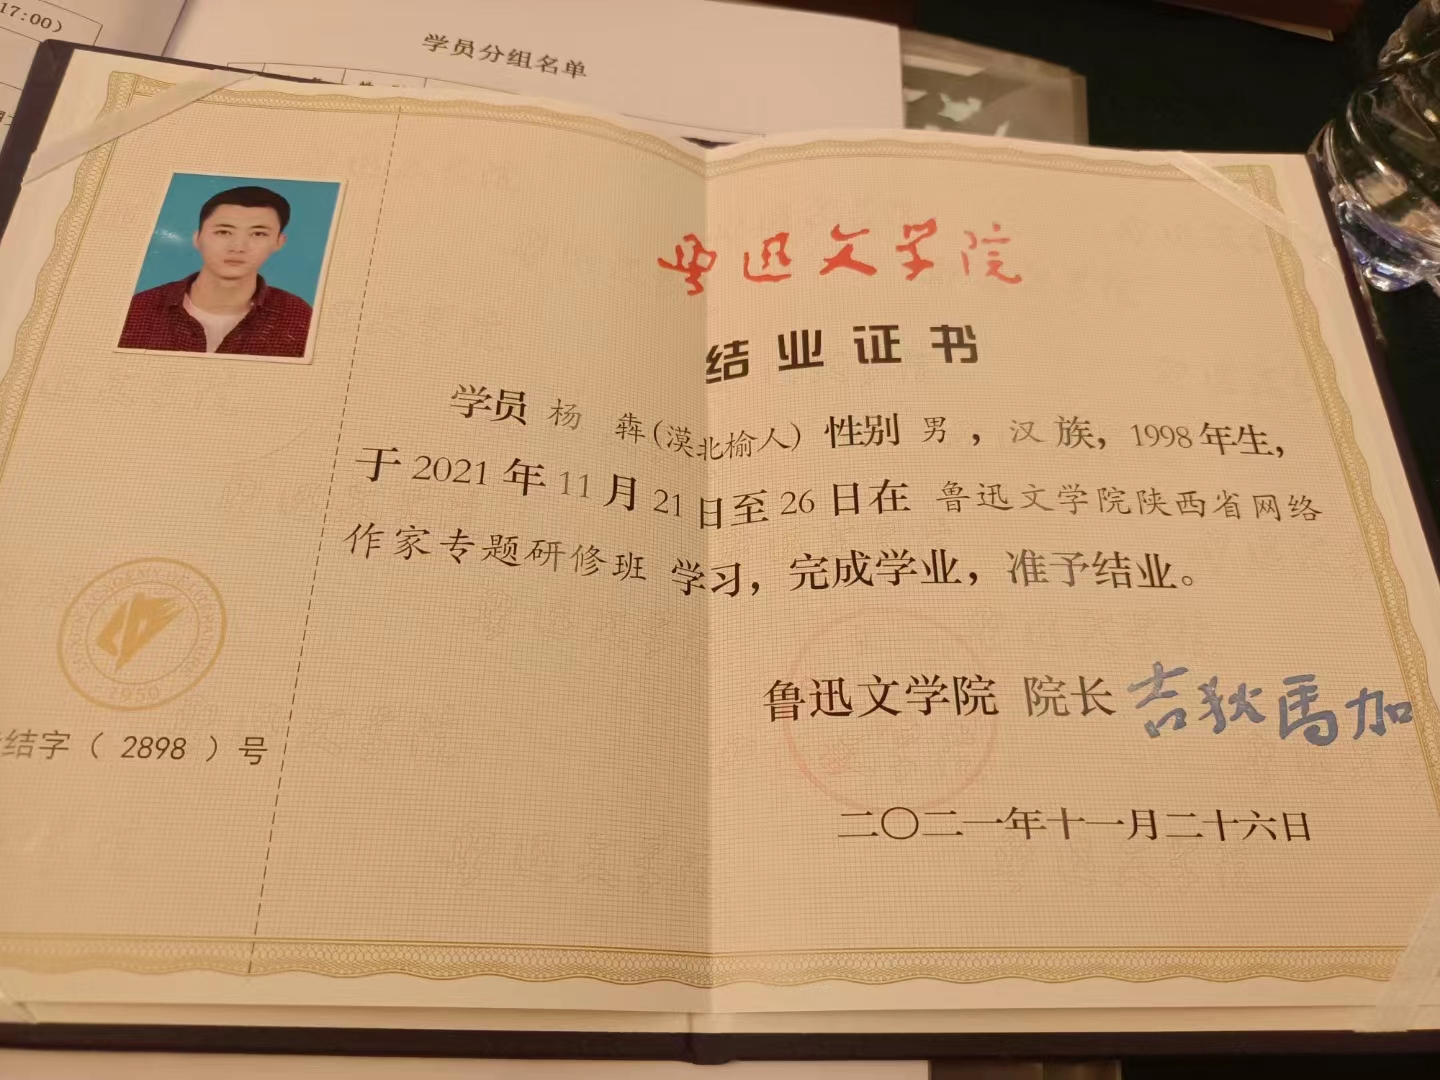 17:00）
学员分组名单
鲁迅文学院
结业证书
学员 杨 犇（漠北榆人）性别 男 ，汉 族，1998 年生，
于 2021 年 11 月 21 日至 26 日在 鲁迅文学院陕西省网络
作家专题研修班 学习，完成学业，准予结业。
1950
结字（ 2898 ）号
鲁迅文学院 院长 吉狄马加
二〇二一年十一月二十六日